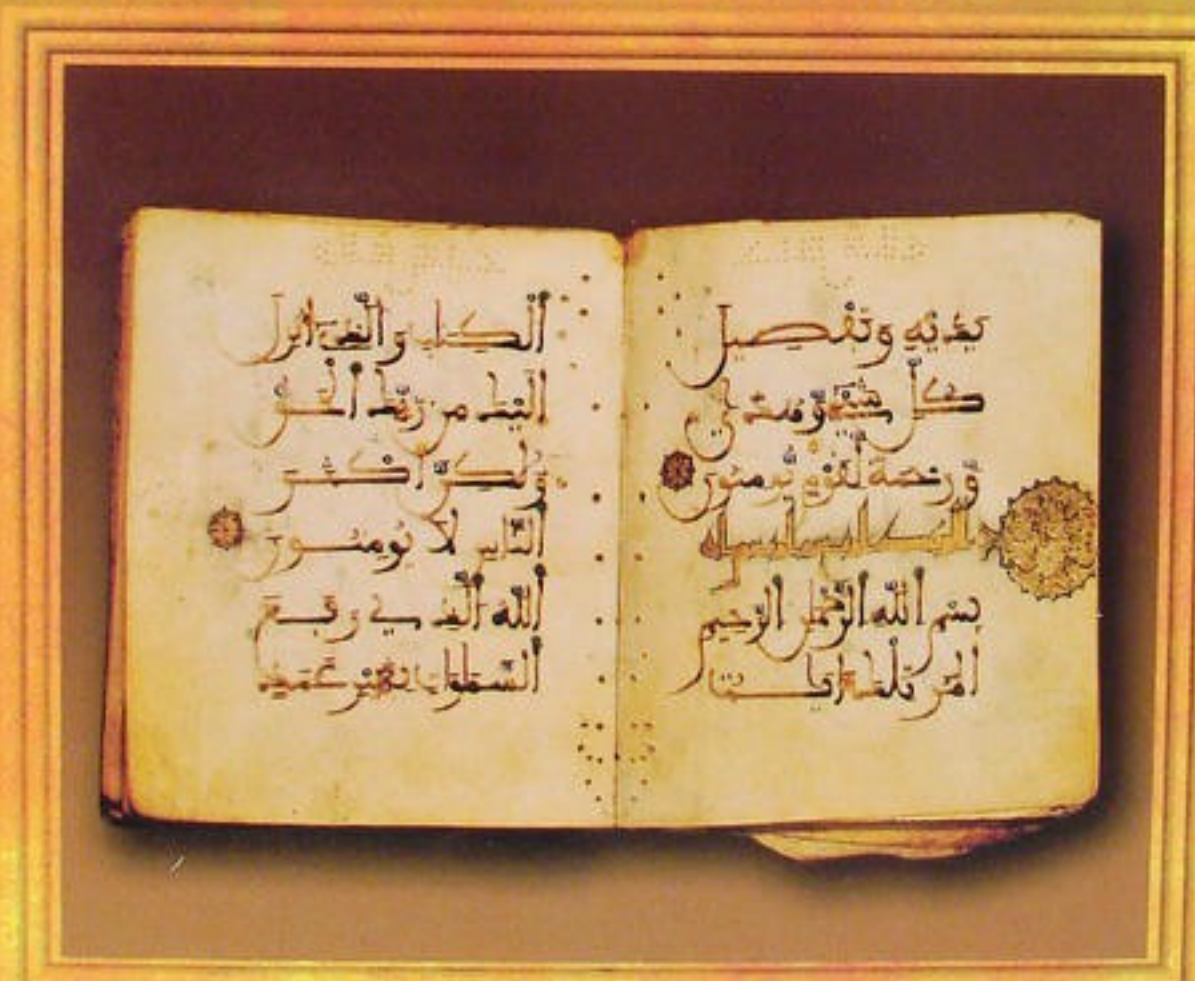 يديه وتفصيل
كل شيء وهدى
ورحمة لقوم يؤمنون
بسم الله الرحمن الرحيم
المر تلك ايات
الكتاب والذي انزل
اليك من ربك الحق
ولكن اكثر
الناس لا يؤمنون
الله الذي رفع
السموات بغير عمد